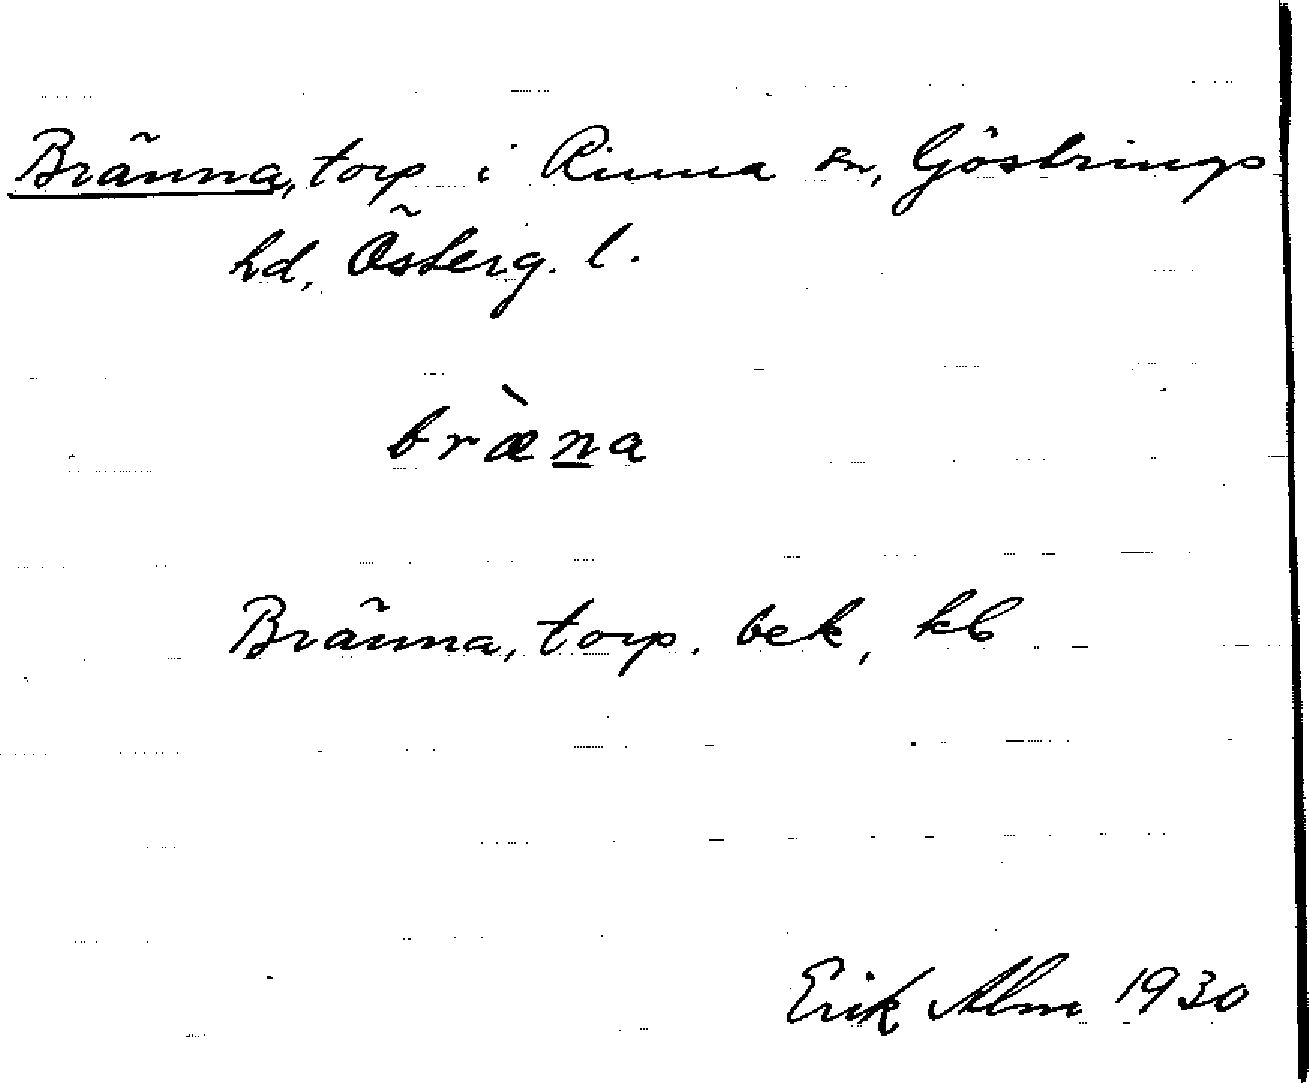 Bränna, torp i Rinna sn, Göstrings
hd, Österg. l.
bræ̀n̲a
Bränna, torp. bek, kb
Erik Alm 1930